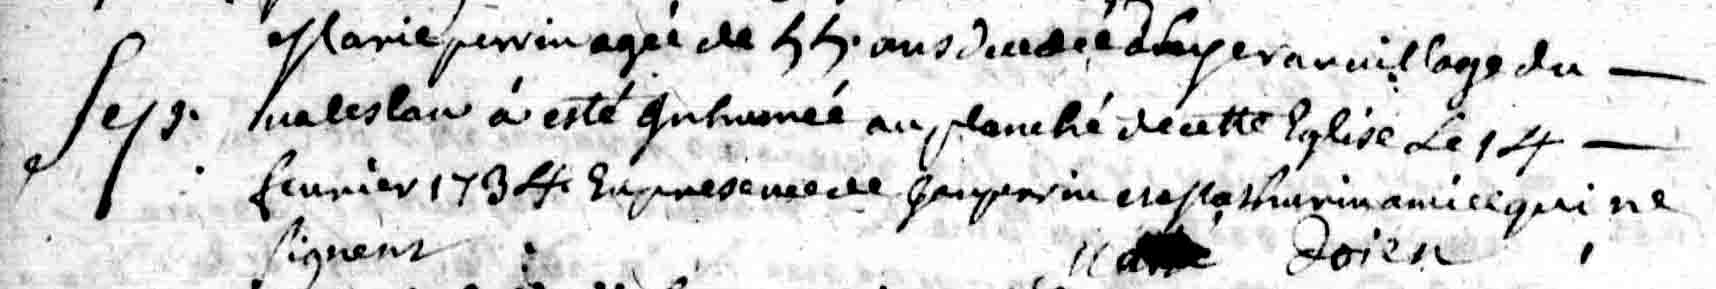 Marie perrin agée de 55. ans decedée d'hyer au village du
Sep. valeslan á esté Inhumée au planché de cette Eglise Le 14
feuurier 1734 En presence de Jan perrin et Mathurin amice qui ne
signent doien